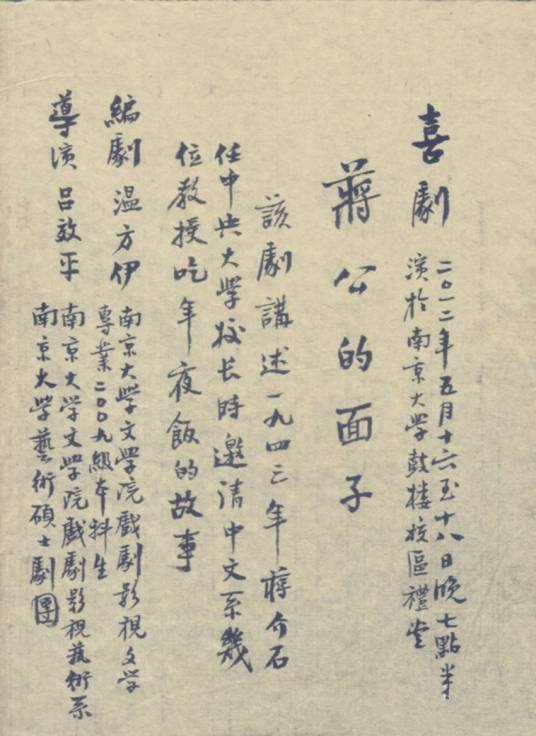 喜劇
二〇一二年五月十六至十八日晚七點半
演於南京大学鼓楼校區禮堂
蔣公的面子
該劇講述一九四三年蔣介石
任中央大學校长時邀请中文系幾
位教授吃年夜飯的故事
編劇 温方伊
南京大学文學院戲劇影視文学
專業二〇〇九級本科生
導演 吕效平
南京大学文學院戲劇影視藝術系
南京大学藝術碩士劇團